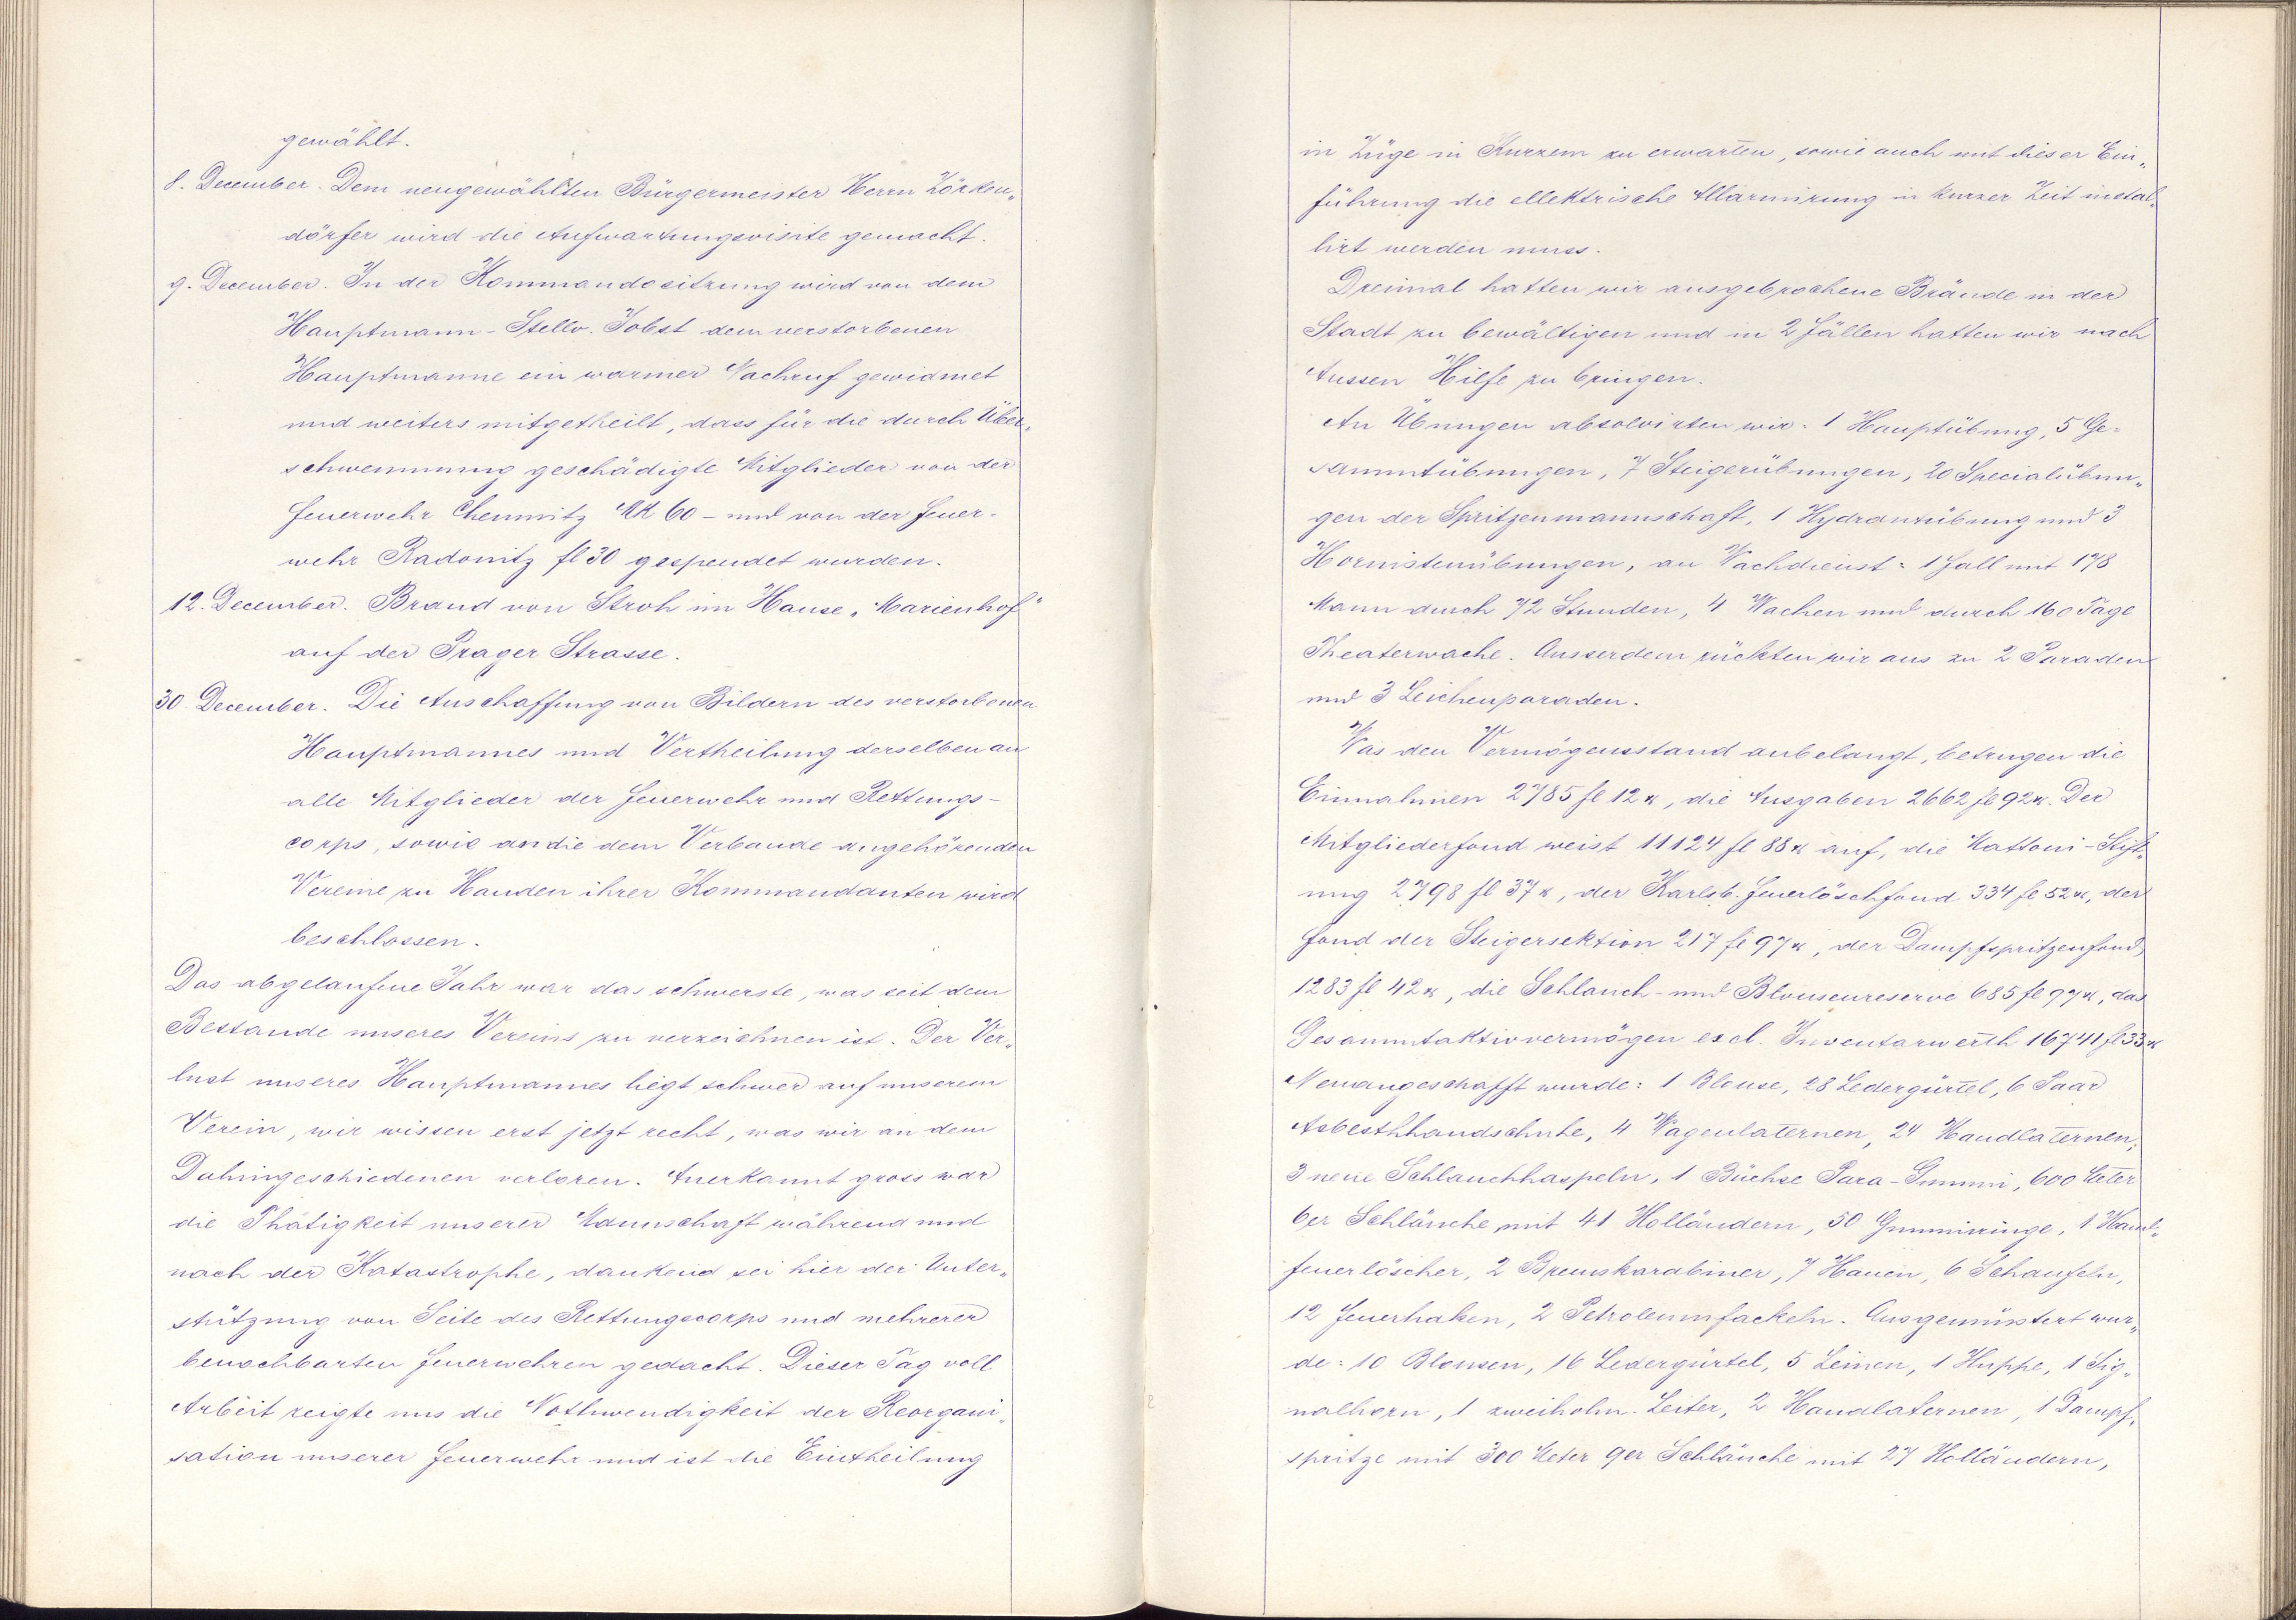 gewählt.
8. December. Dem neugewählten Bürgermeister Herrn Zörken„
dörfer wird die Aufwartungsvisite gemacht.
9. December. In der Kommandositzung wird von dem
Hauptmann-Stellv. Jobst dem verstorbenen
Hauptmanne ein warmer Nachruf gewidmet
und weiters mitgetheilt, dass für die durch Über„
schwemmung geschädigte Mitglieder von der
Feuerwehr Chemnitz Mk 60 - und von der Feuer-
wehr Radonitz fl 30 gespendet wurden.
12. December. Brand von Stroh im Hause „Marienhof"
auf der Prager Strasse.
30. December. Die Anschaffung von Bildern des verstorbenen
Hauptmannes und Vertheilung derselben an
alle Mitglieder der Feuerwehr und Rettungs-
corps, sowie an die dem Verbande angehörenden
Vereine zu Handen ihrer Kommandanten wird
beschlossen.
Das abgelaufene Jahr war das schwerste, was seit dem
Bestande unseres Vereins zu verzeichnen ist. Der Ver„
lust unseres Hauptmannes liegt schwer auf unserem
Verein, wir wissen erst jetzt recht, was wir an dem
Dahingeschiedenen verloren. Anerkannt gross war
die Thätigkeit unserer Mannschaft während und
nach der Katastrophe, dankend sei hier der Unter„
stützung von Seite des Rettungscorps und mehrerer
benachbarten Feuerwehren gedacht. Dieser Tag voll
Arbeit zeigte uns die Nothwendigkeit der Reorgani„
sation unserer Feuerwehr und ist die Eintheilung
in Züge in Kurzem zu erwarten, sowie auch mit dieser Ein„
führung die ellektrische Allarmirung in kurzer Zeit instal„
lirt werden muss.
Dreimal hatten wir ausgebrochene Brände in der
Stadt zu bewältigen und in 2 Fällen hatten wir nach
Aussen Hilfe zu bringen.
An Übungen absolvirten wir: 1 Hauptübung, 5 Ge-
sammtübungen, 7 Steigerübungen, 20 Specialübun„
gen der Spritzenmannschaft, 1 Hydrantübung und 3
Hornistenübungen, an Wachdienst: 1 Fall mit 178
Mann durch 72 Stunden, 4 Wachen und durch 160 Tage
Theaterwache. Ausserdem rückten wir aus zu 2 Paraden
und 3 Leichenparaden.
Was den Vermögensstand anbelangt, betrugen die
Einnahmen 2785 fl 12 x, die Ausgaben 2662 fl 92 x. Der
Mitgliederfond weist 11124 fl 88 x auf, die Mattoni-Stift„
ung 2798 fl 37 x, der Karlsb. Feuerlöschfond 334 fl 52 x, der
Fond der Steigersektion 217 fl 97 x, der Dampfspritzenfond
1283 fl 42 x, die Schlauch- und Blousenreserve 685 fl 97 x, das
Gesammtaktivvermögen excl. Inventarwerth 16741 fl 33 x
Neuangeschafft wurde: 1 Blouse, 28 Ledergürtel, 6 Paar
Asbesthhandschuhe, 4 Wagenlaternen, 24 Handlaternen,
3 neue Schlauchhaspeln, 1 Büchse Para-Gummi, 600 Meter
6er Schläuche mit 41 Holländern, 50 Gummiringe, 1 Hand„
feuerlöscher, 2 Bremskarabiner, 7 Hauen, 6 Schaufeln,
12 Feuerhaken, 2 Petroleumfackeln. Ausgemüstert wur„
de: 10 Blousen, 16 Ledergürtel, 5 Leinen, 1 Huppe, 1 Sig„
nalhorn, 1 zweiholm. Leiter, 2 Handlaternen, 1 Dampf„
spritze mit 300 Meter 9er Schläuche mit 27 Holländern,